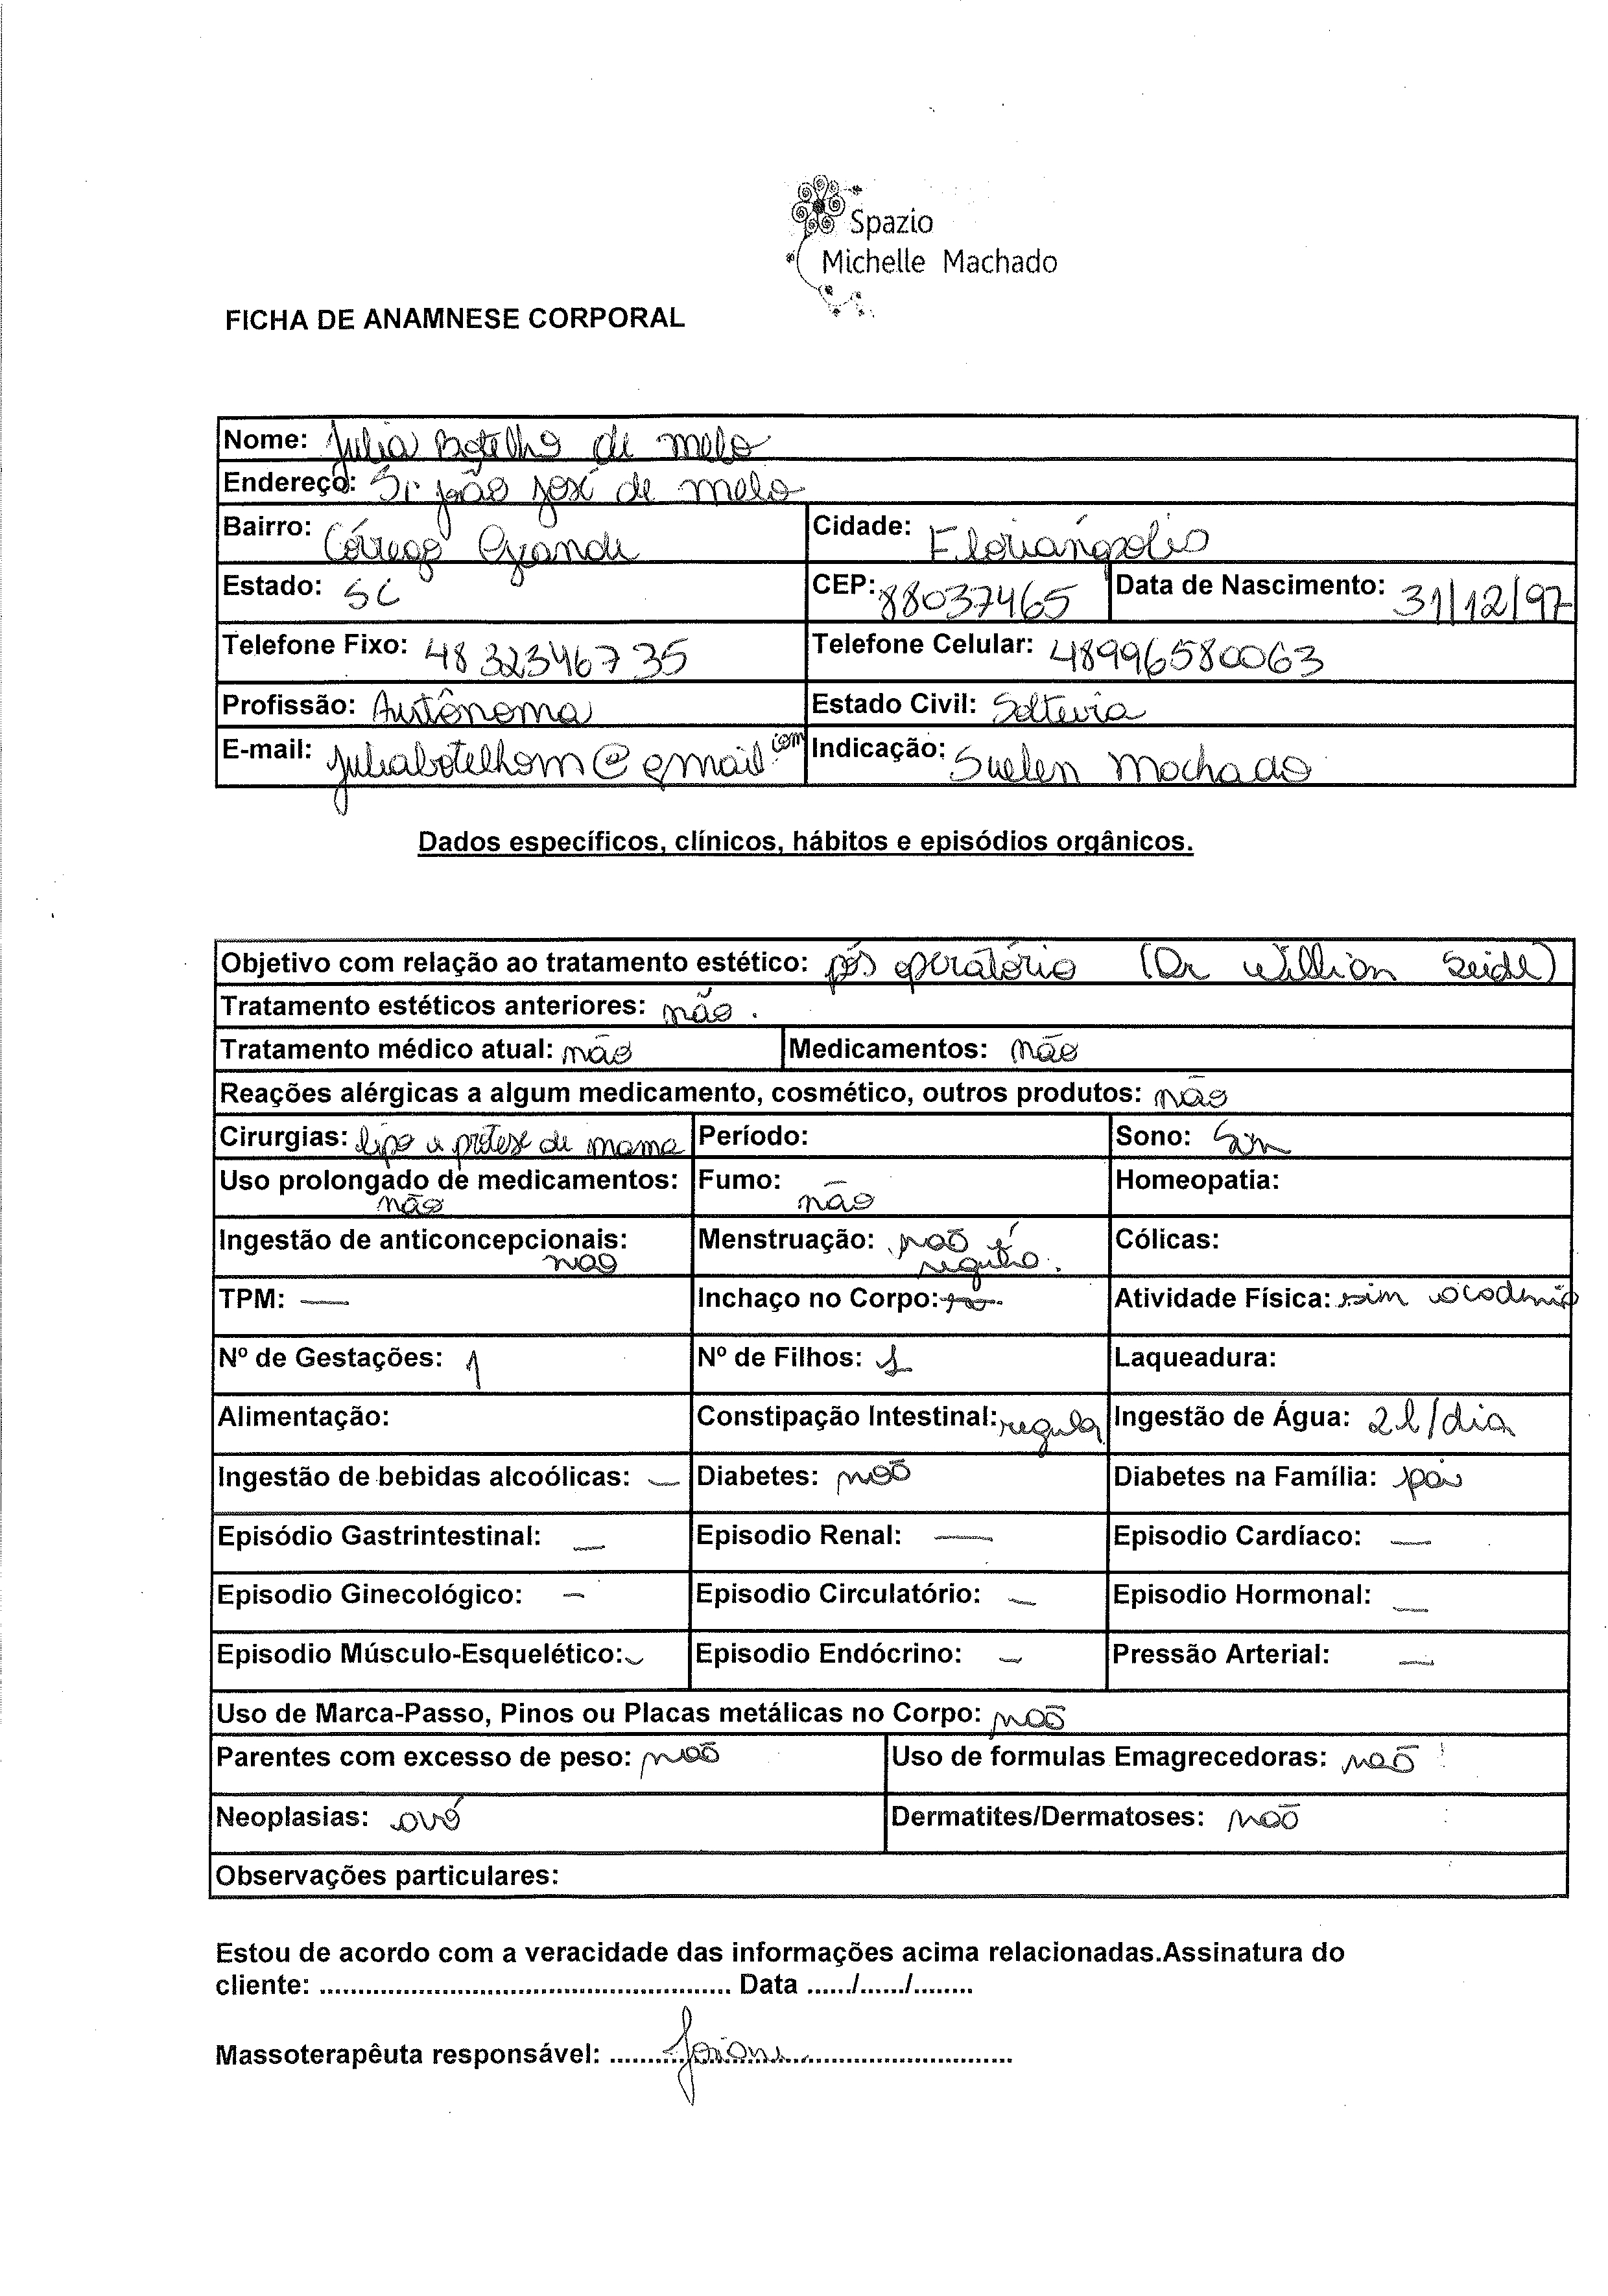 Spazio
Michelle Machado
FICHA DE ANAMNESE CORPORAL
Nome: Julia Botelho de melo
Endereço: Sr joão josé de melo
Bairro: Córrego Grande Cidade: Florianópolis
Estado: SC CEP: 88037465 Data de Nascimento: 31/12/97
Telefone Fixo: 48 32346735 Telefone Celular: 48996580063
Profissão: Autônoma Estado Civil: Solteira
E-mail: juliabotelhom@gmail.com Indicação: Suelen Machado
Dados específicos, clínicos, hábitos e episódios orgânicos.
Objetivo com relação ao tratamento estético: pós operatório (Dr Willian Seidel)
Tratamento estéticos anteriores: não .
Tratamento médico atual: não Medicamentos: não
Reações alérgicas a algum medicamento, cosmético, outros produtos: não
Cirurgias: lipo e protese de mama Período: Sono: Sim
Uso prolongado de medicamentos: Fumo: Homeopatia:
não não
Ingestão de anticoncepcionais: Menstruação: não é Cólicas:
nao regular.
TPM: — Inchaço no Corpo: Atividade Física: sim academia
Nº de Gestações: 1 Nº de Filhos: 1 Laqueadura:
Alimentação: Constipação Intestinal: regular Ingestão de Água: 2 l/dia
Ingestão de bebidas alcoólicas: — Diabetes: não Diabetes na Família: pai
Episódio Gastrintestinal: — Episodio Renal: — Episodio Cardíaco: —
Episodio Ginecológico: — Episodio Circulatório: — Episodio Hormonal: —
Episodio Músculo-Esquelético: — Episodio Endócrino: — Pressão Arterial: —
Uso de Marca-Passo, Pinos ou Placas metálicas no Corpo: não
Parentes com excesso de peso: não Uso de formulas Emagrecedoras: não
Neoplasias: avó Dermatites/Dermatoses: não
Observações particulares:
Estou de acordo com a veracidade das informações acima relacionadas.Assinatura do
cliente: ...................................................... Data ....../....../........
Massoterapêuta responsável: .....................................................